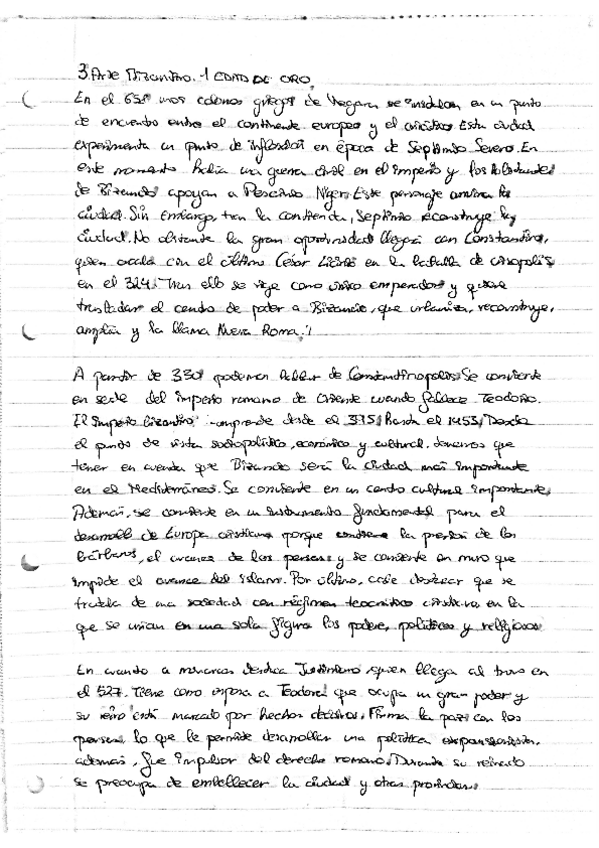 3. Arte Bizantino. 1 EDAD DE ORO.
En el 658 unos colonos griegos de Megara se instalan en un punto
de encuentro entre el continente europeo y el asiático. Esta ciudad
experimenta un punto de inflexión en época de Septimio Severo. En
este momento había una guerra civil en el imperio y los habitantes
de Bizancio apoyan a Pescenio Niger. Este personaje arruina la
ciudad. Sin embargo, tras la contienda, Septimio reconstruye la
ciudad. No obstante la gran oportunidad llegará con Constantino,
quien acaba con el último César Licinio en la batalla de Crisopolis
en el 324. Tras ello se erige como único emperador y quiere
trasladar el centro de poder a Bizancio, que urbaniza, reconstruye,
amplía y la llama Nueva Roma.
A partir de 330 podemos hablar de Constantinopolis. Se convierte
en sede del imperio romano de Oriente cuando fallece Teodosio.
El imperio bizantino comprende desde el 395 hasta el 1453. Desde
el punto de vista sociopolítico, económico y cultural, tenemos que
tener en cuenta que Bizancio será la ciudad más importante
en el Mediterráneo. Se convierte en un centro cultural importante.
Además, se convierte en un instrumento fundamental para el
desarrollo de Europa cristiana porque contiene la presión de los
bárbaros, el avance de los persas y se convierte en muro que
impide el avance del Islam. Por último, cabe destacar que se
trata de una sociedad con régimen teocrático cristiano en la
que se unían en una sola figura los poderes políticos y religiosos
En cuanto a monarcas destaca Justiniano quien llega al trono en
el 527. Tiene como esposa a Teodora que ocupa un gran poder y
su reino está marcado por hechos decisivos. Firma la paz con los
persas, lo que le permite desarrollar una política expansionista.
además, fue impulsor del derecho romano. Durante su reinado
se preocupa de embellecer la ciudad y otras provincias.